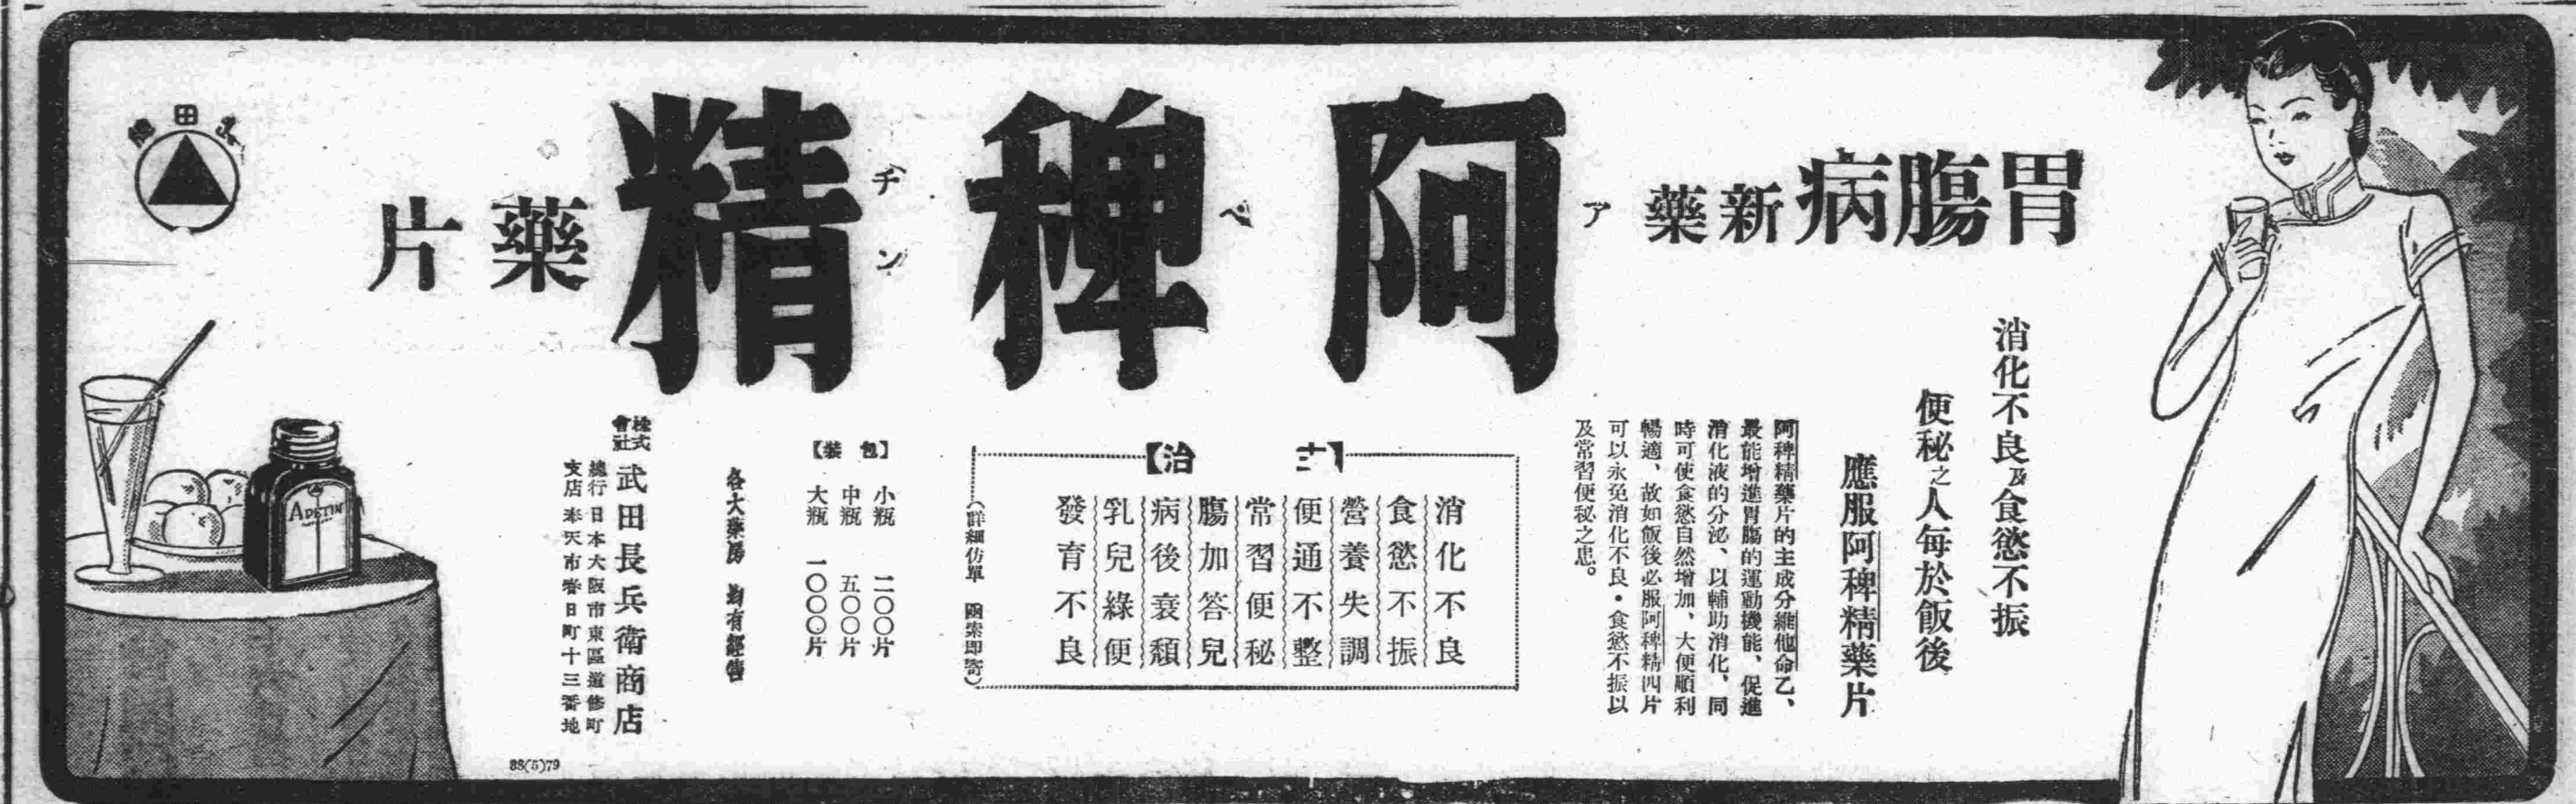 胃腸病新藥
阿稗精藥片
アペチン
消化不良及食慾不振
便秘之人每於飯後
應服阿稗精藥片
阿稗精藥片的主成分維他命乙、
最能增進胃腸的運動機能、促進
消化液的分泌、以輔助消化、同
時可使食慾自然增加、大便順利
暢適、故如飯後必服阿稗精四片
可以永免消化不良・食慾不振以
及常習便秘之患。
【主治】
消化不良
食慾不振
營養失調
便通不整
常習便秘
腸加答兒
病後衰頹
乳兒綠便
發育不良
（詳細仿單 函索即寄）
【包裝】
小瓶 二〇〇片
中瓶 五〇〇片
大瓶 一〇〇〇片
各大藥房 均有經售
株式會社 武田長兵衛商店
總行 日本大阪市東區道修町
支店 奉天市春日町十三番地
武田
APETIN
88(5)79